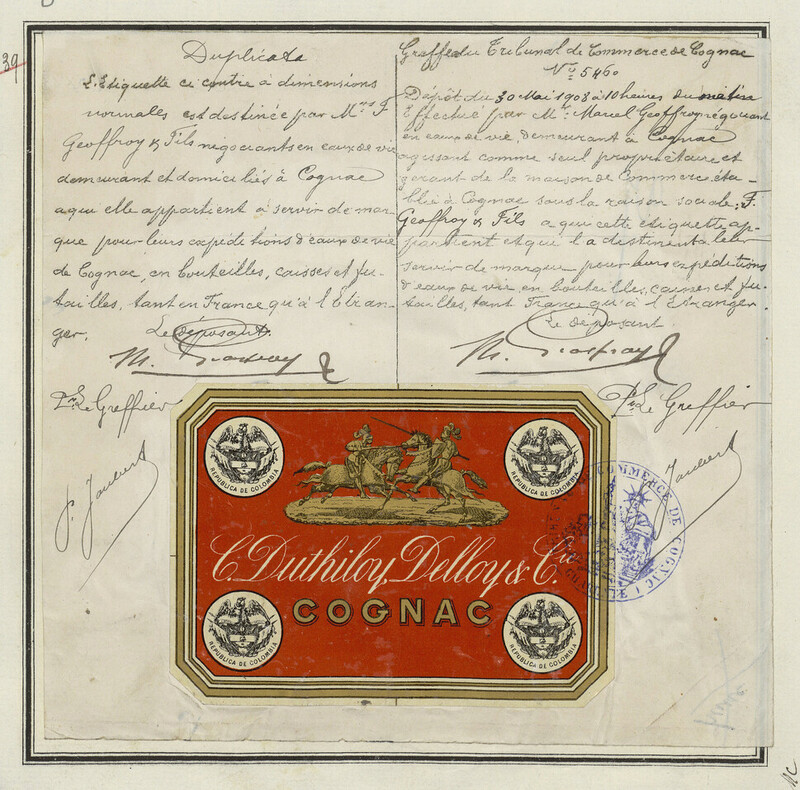 39
Duplicata
L'Etiquette ci contre à dimensions
normales est destinée par Mrs F.
Geoffroy & Fils négociants en eaux de vie
demeurant et domiciliés à Cognac
a qui elle appartient à servir de mar
que pour leurs expéditions d'eaux de vie
de Cognac, en bouteilles, caisses et fu-
tailles, tant en France qu'à l'Etran-
ger.
Le déposant.
M. Geoffroy
Pr Le Greffier
P. Jaubert
Greffe du Tribunal de Commerce de Cognac
No 5460
Dépôt du 30 Mai 1908 à 10 heures du matin
Effectué par Mr Marcel Geoffroy négociant
en eaux de vie, demeurant à Cognac
agissant comme seul propriétaire et
gérant de la maison de Commerce éta-
blie à Cognac sous la raison sociale: F.
Geoffroy & Fils a qui cette étiquette ap-
partient et qui l'a destinent à leur
servir de marque pour leurs expéditions
d'eaux de vie en bouteilles, caisses et fu-
tailles, tant France qu'à l'Etranger.
Le déposant
M. Geoffroy
Pr Le Greffier
Jaubert
REPUBLICA DE COLOMBIA
REPUBLICA DE COLOMBIA
C. Duthiloy, Delloy & Cie
COGNAC
REPUBLICA DE COLOMBIA
REPUBLICA DE COLOMBIA
COMMERCE DE COGNAC